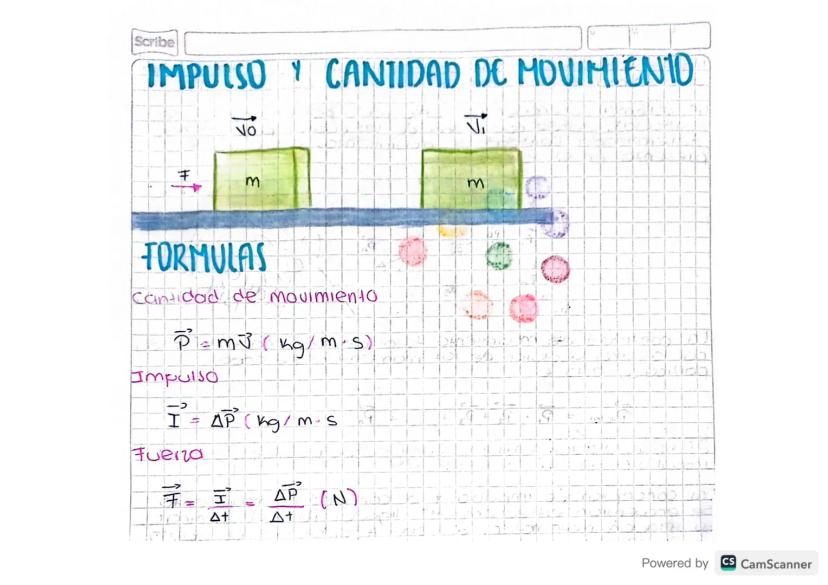 Scribe
IMPULSO Y CANTIDAD DE MOVIMIENTO
V0 V1
F m m
FORMULAS
Cantidad de movimiento
P = mV (kg/m·s)
Impulso
I = ΔP (kg/m·s
Fuerza
F = I/Δt = ΔP/Δt (N)
Powered by CS CamScanner